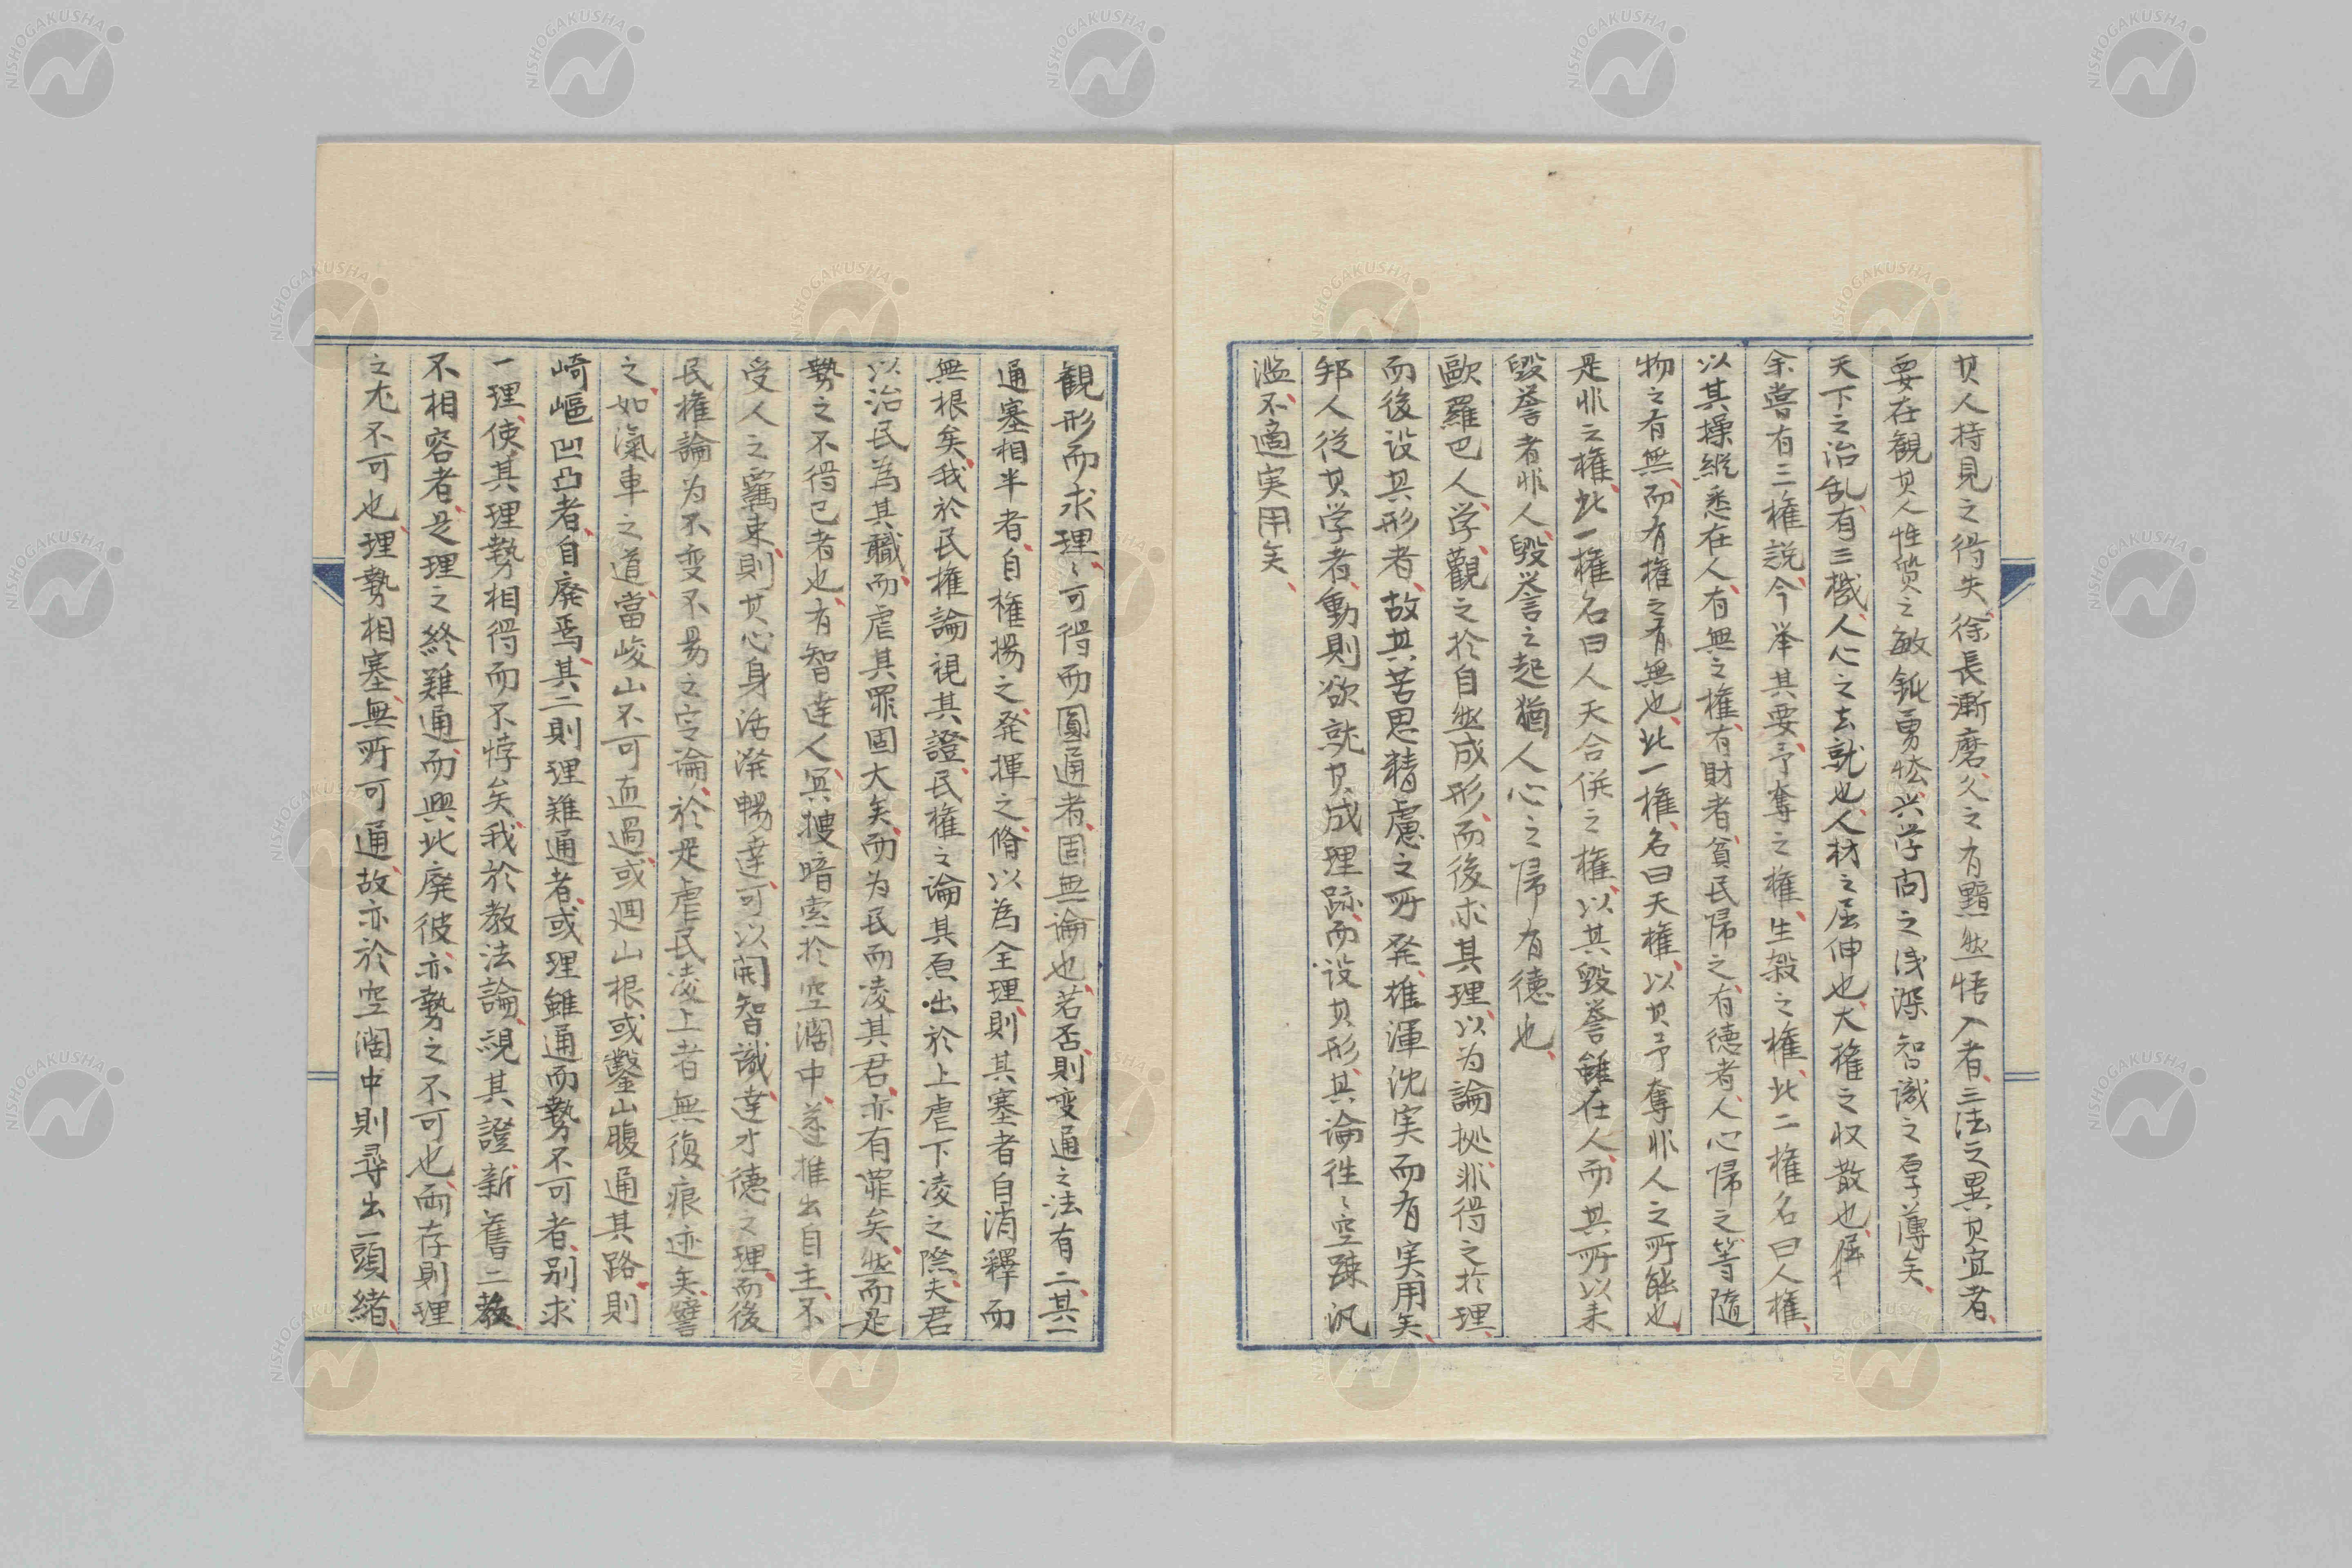 其人持見之得失、徐長漸磨、久之有黯然悟入者、三法之異其宜者、
要在観其人性質之敏鈍勇怯、与学問之浅深智識之厚薄矣、
天下之治乱、有三機、人心之去就也、人材之屈伸也、大権之収散也、
余嘗有三権説、今挙其要、予奪之権、生殺之権、此二権名曰人権、
以其操縦悉在人、有無之権、有財者、貧民帰之、有徳者、人心帰之、等随
物之有無、而有権之有無也、此一権、名曰天権、以其予奪非人之所能也、
是非之権、此一権名曰人天合併之権、以其毀誉雖在人、而其所以未
毀誉者非人、毀誉之起猶人心之帰有徳也、
歐羅巴人、学、觀之於自然成形、而後求其理、以为論拠、非得之於理、
而後设其形者、故其苦思精慮之所発、雄渾沈実而有実用矣、
邦人従其学者、動則欲就其成理跡、而设其形、其論徃〻空疎汎
濫不適実用矣、
観形而求理〻可得而圓通者、固無論也、若否、則変通之法有二、其一
通塞相半者、自権揚之、発揮之、脩以為全理、則其塞者自消釋而
無根矣、我於民権論視其證、民権之論其原出於上虐下凌之際、夫君
以治民為其職、而虐其罪固大矣、而为民而凌其君、亦有罪矣、然而是
勢之不得已者也、有智達人、冥捜暗索於空濶中、遂推出自主、不
受人之羈束、則其心身活溌暢達、可以開智識達才徳之理、而後
民権論为不変不易之定論、於是虐民凌上者無復痕迹矣、譬
之、如滊車之道、當峻山不可直過、或廻山根或鑿山腹通其路、則
崎嶇凹凸者、自廃焉、其二則理難通者、或理雖通而勢不可者、別求
一理、使其理勢相得而不悖矣、我於教法論、視其證新舊二教
不相容者、是理之終難通、而興此廃彼、亦勢之不可也、両存則理
之尤不可也、理勢相塞、無所可通、故亦於空濶中則尋出一頭緒、